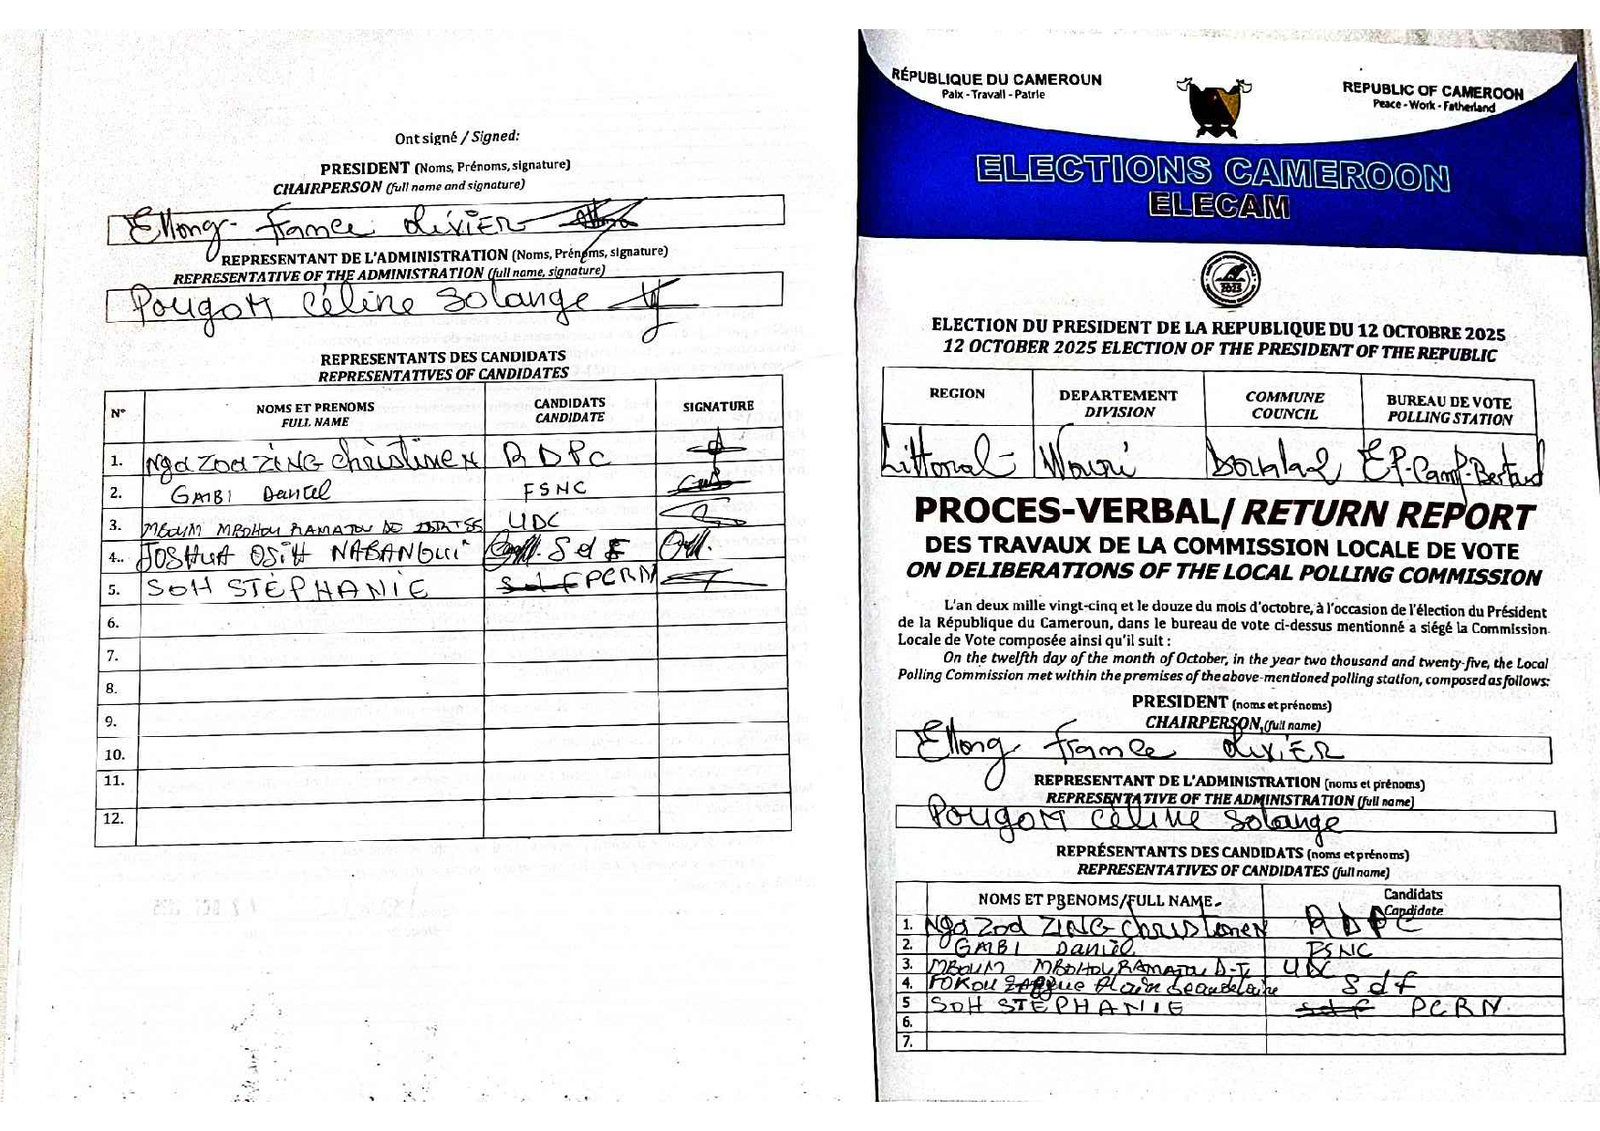 Ont signé / Signed:
PRESIDENT (Noms, Prénoms, signature)
CHAIRPERSON (full name and signature)
Ellong France Olivier
REPRESENTANT DE L'ADMINISTRATION (Noms, Prénoms, signature)
REPRESENTATIVE OF THE ADMINISTRATION (full name, signature)
Pougom Céline Solange
REPRESENTANTS DES CANDIDATS
REPRESENTATIVES OF CANDIDATES
N° NOMS ET PRENOMS FULL NAME CANDIDATS CANDIDATE SIGNATURE
1. Nga Zoa ZING Christinen RDPC
2. GAIBI Daniel FSNC
3. MBOUM MBOHOU RAMATOU DE UDC
4.. JOSHUA OSIH NABANGUI Sdf
5. SOH STÉPHANIE sdf PCRN
6.
7.
8.
9.
10.
11.
12.
RÉPUBLIQUE DU CAMEROUN
Paix - Travail - Patrie
REPUBLIC OF CAMEROON
Peace - Work - Fatherland
ELECTIONS CAMEROON
ELECAM
2025
ELECTION DU PRESIDENT DE LA REPUBLIQUE DU 12 OCTOBRE 2025
12 OCTOBER 2025 ELECTION OF THE PRESIDENT OF THE REPUBLIC
REGION DEPARTEMENT DIVISION COMMUNE COUNCIL BUREAU DE VOTE POLLING STATION
Littoral Wouri Douala EP-Camp-Bertaud
PROCES-VERBAL/ RETURN REPORT
DES TRAVAUX DE LA COMMISSION LOCALE DE VOTE
ON DELIBERATIONS OF THE LOCAL POLLING COMMISSION
L'an deux mille vingt-cinq et le douze du mois d'octobre, à l'occasion de l'élection du Président
de la République du Cameroun, dans le bureau de vote ci-dessus mentionné a siégé la Commission
Locale de Vote composée ainsi qu'il suit :
On the twelfth day of the month of October, in the year two thousand and twenty-five, the Local
Polling Commission met within the premises of the above-mentioned polling station, composed as follows:
PRESIDENT (noms et prénoms)
CHAIRPERSON, (full name)
Ellong France Olivier
REPRESENTANT DE L'ADMINISTRATION (noms et prénoms)
REPRESENTATIVE OF THE ADMINISTRATION (full name)
Pougom Céline Solange
REPRÉSENTANTS DES CANDIDATS (noms et prénoms)
REPRESENTATIVES OF CANDIDATES (full name)
NOMS ET PRENOMS/FULL NAME Candidats Candidate
1. Nga Zoa ZING Christinen RDPC
2. GAIBI Daniel FSNC
3. MBOUM MBOHOU RAMATOU D-I UDC
4. FOKOU Alain Sdf
5 SOH STEPHANIE sdf PCRN
6.
7.